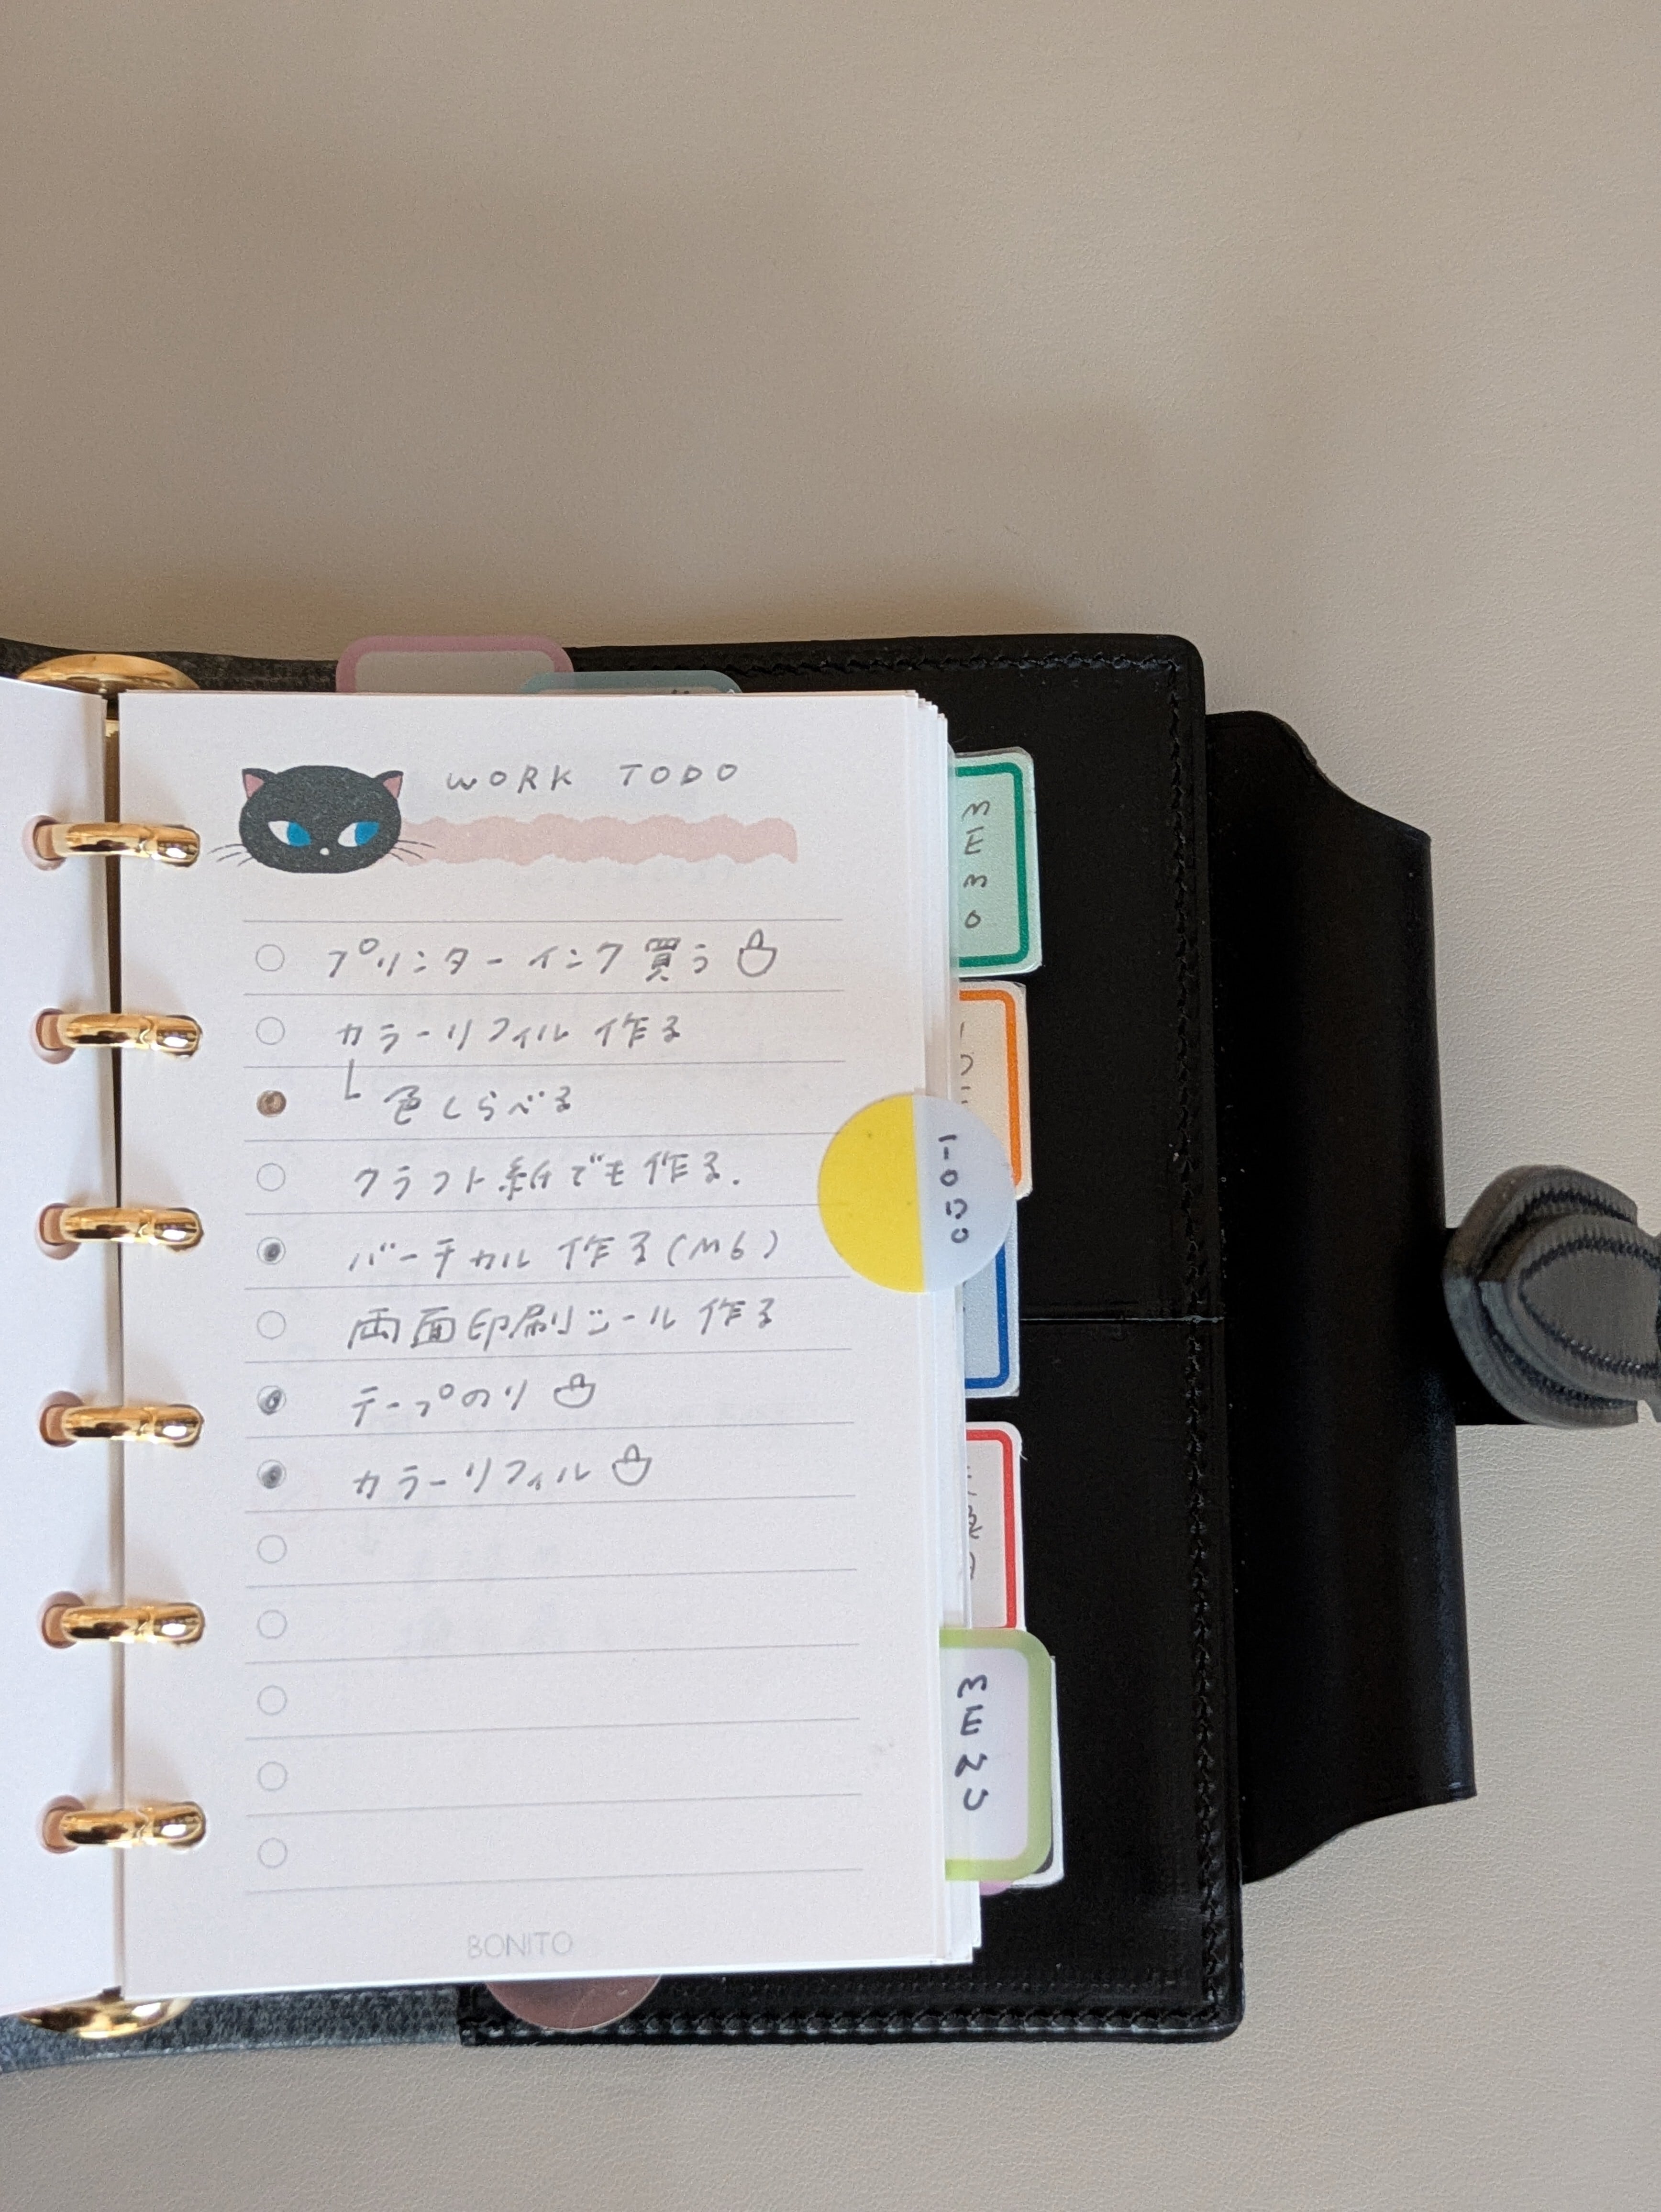 WORK TODO
プリンターインク買う
カラーリフィル 作る
└ 色しらべる
クラフト紙でも作る.
バーチカル 作る(M6)
両面印刷シール 作る
テープのり
カラーリフィル
BONITO
MEMO
TODO
MENU